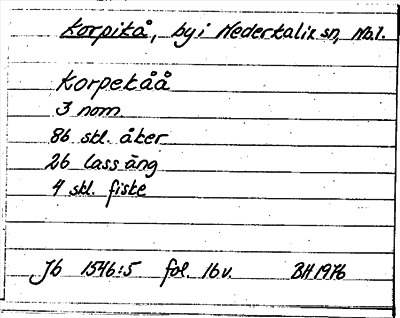 Korpikå, by i Nederkalix sn, Nb.l.
Korpekåå
3 nom
86 skl. åker
26 lass äng
4 skl. fiske
Jb 1546:5 fol. 16v. BH 1976